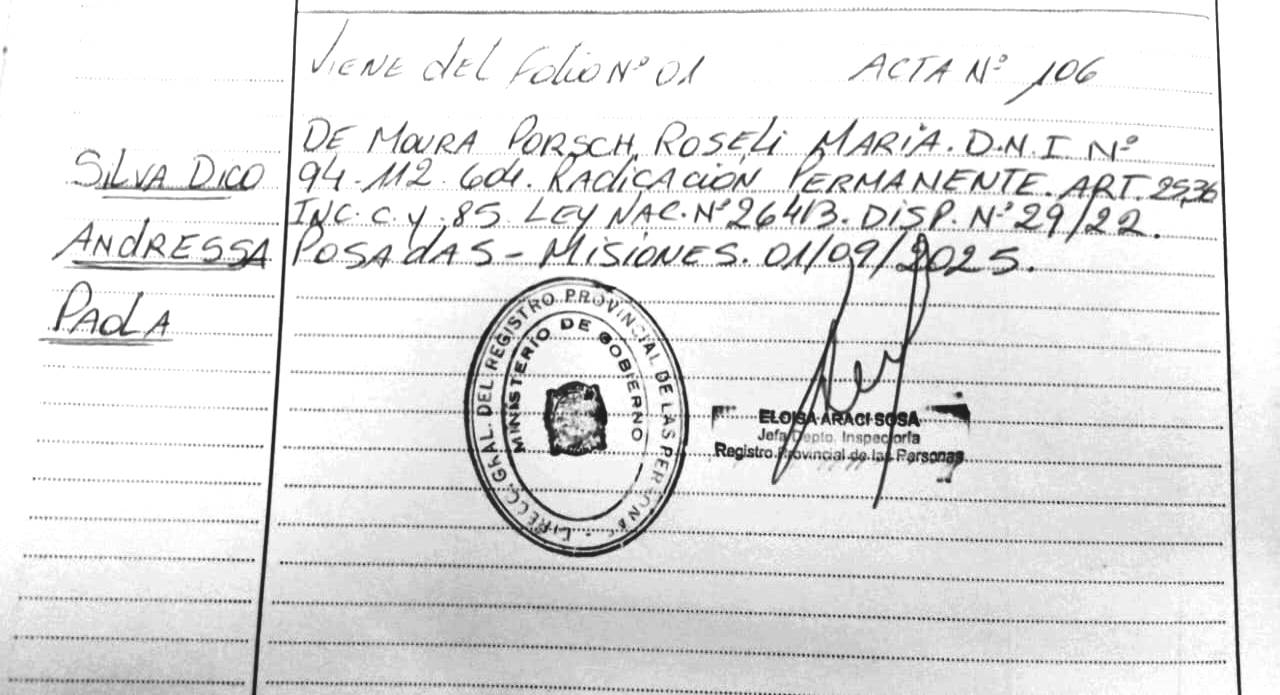 Viene del Folio Nº 01 ACTA Nº 106
SILVA DICO
ANDRESSA
PAOLA
DE MOURA PORSCH, ROSELI MARIA. D.N.I. Nº
94.112.604. RADICACIÓN PERMANENTE. ART. 25,36
INC. C. y. 85. LEY NAC. Nº 26413. DISP. Nº 29/22.
POSADAS - MISIONES. 01/09/2025.
DIRECC. GRAL. DEL REGISTRO PROVINCIAL DE LAS PERSONAS
MINISTERIO DE GOBIERNO
ELOISA ARACI SOSA
Jefa Depto. Inspectoría
Registro Provincial de las Personas